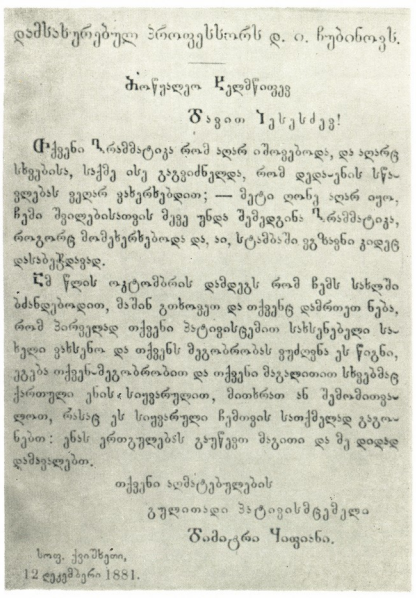 დამსახურებულ პროფესსორს დ. ი. ჩუბინოვს.
მოწყალეო ჴელმწიფევ
დავით იესესძევ!
თქვენი გრამმატიკა რომ აღარ იშოვებოდა, და აღარც
სხვებისა, საქმე ისე გაგვიძნელდა, რომ დედა-ენის სწა-
ვლებას ვეღარ ვახერხებდით; — მეტი ღონე აღარ იყო,
ჩემი შვილებისათვის მევე უნდა შემედგინა გრამმატიკა,
როგორც მომეხერხებოდა და, აი, სტამბაში ვგზავნი კიდეც
დასაბეჭდავად.
ამ წლის ოკტომბრის დამდეგს რომ ჩემს სახლში
ბძანდებოდით, მაშინ გთხოვეთ და თქვენც დამრთეთ ნება,
რომ პირველად თქვენი პატივისცემით სახსენებელი სა-
ხელი ვახსენო და თქვენს მეგობრობას ვუძღვნა ეს წიგნი,
ეგება თქვენ-მეგობრობით და თქვენი მაგალითით სხვებმაც
ქართული ენის სიყვარულით, მითხრათ ან შემომითვა-
ლოთ, რასაც ეს სიყვარული ჩემთვის სათქმელად გაგო-
ნებთ: ენას ერთგულებას გაუწევთ მაგითი და მე დიდად
დამავალებთ.
თქვენი აღმატებულების
გულითადი პატივისმცემელი
დიმიტრი ყიფიანი.
სოფ. ქვიშხეთი,
12 დეკემბერი 1881.